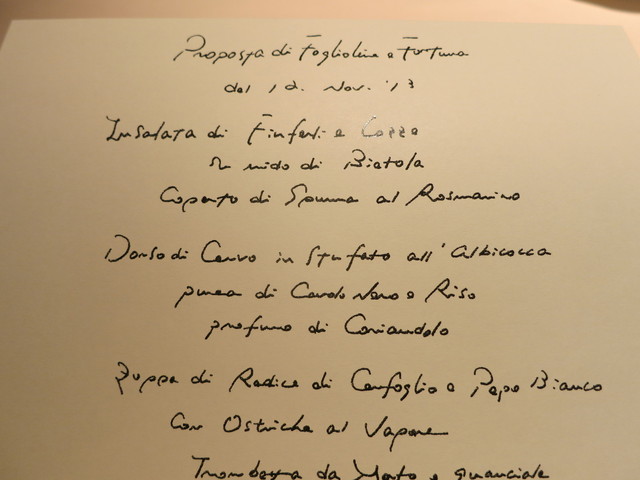 Proposta di Fogliolina e Fortuna
del 12. Nov. '13
Insalata di Finferli e Cozze
su nido di Bietola
Coperto di Spuma al Rosmarino
Dorso di Cervo in Stufato all'Albicocca
purea di Cavolo Nero e Riso
profumo di Coriandolo
Zuppa di Radice di Cerfoglio e Pepe Bianco
Con Ostriche al Vapore
da e guanciale